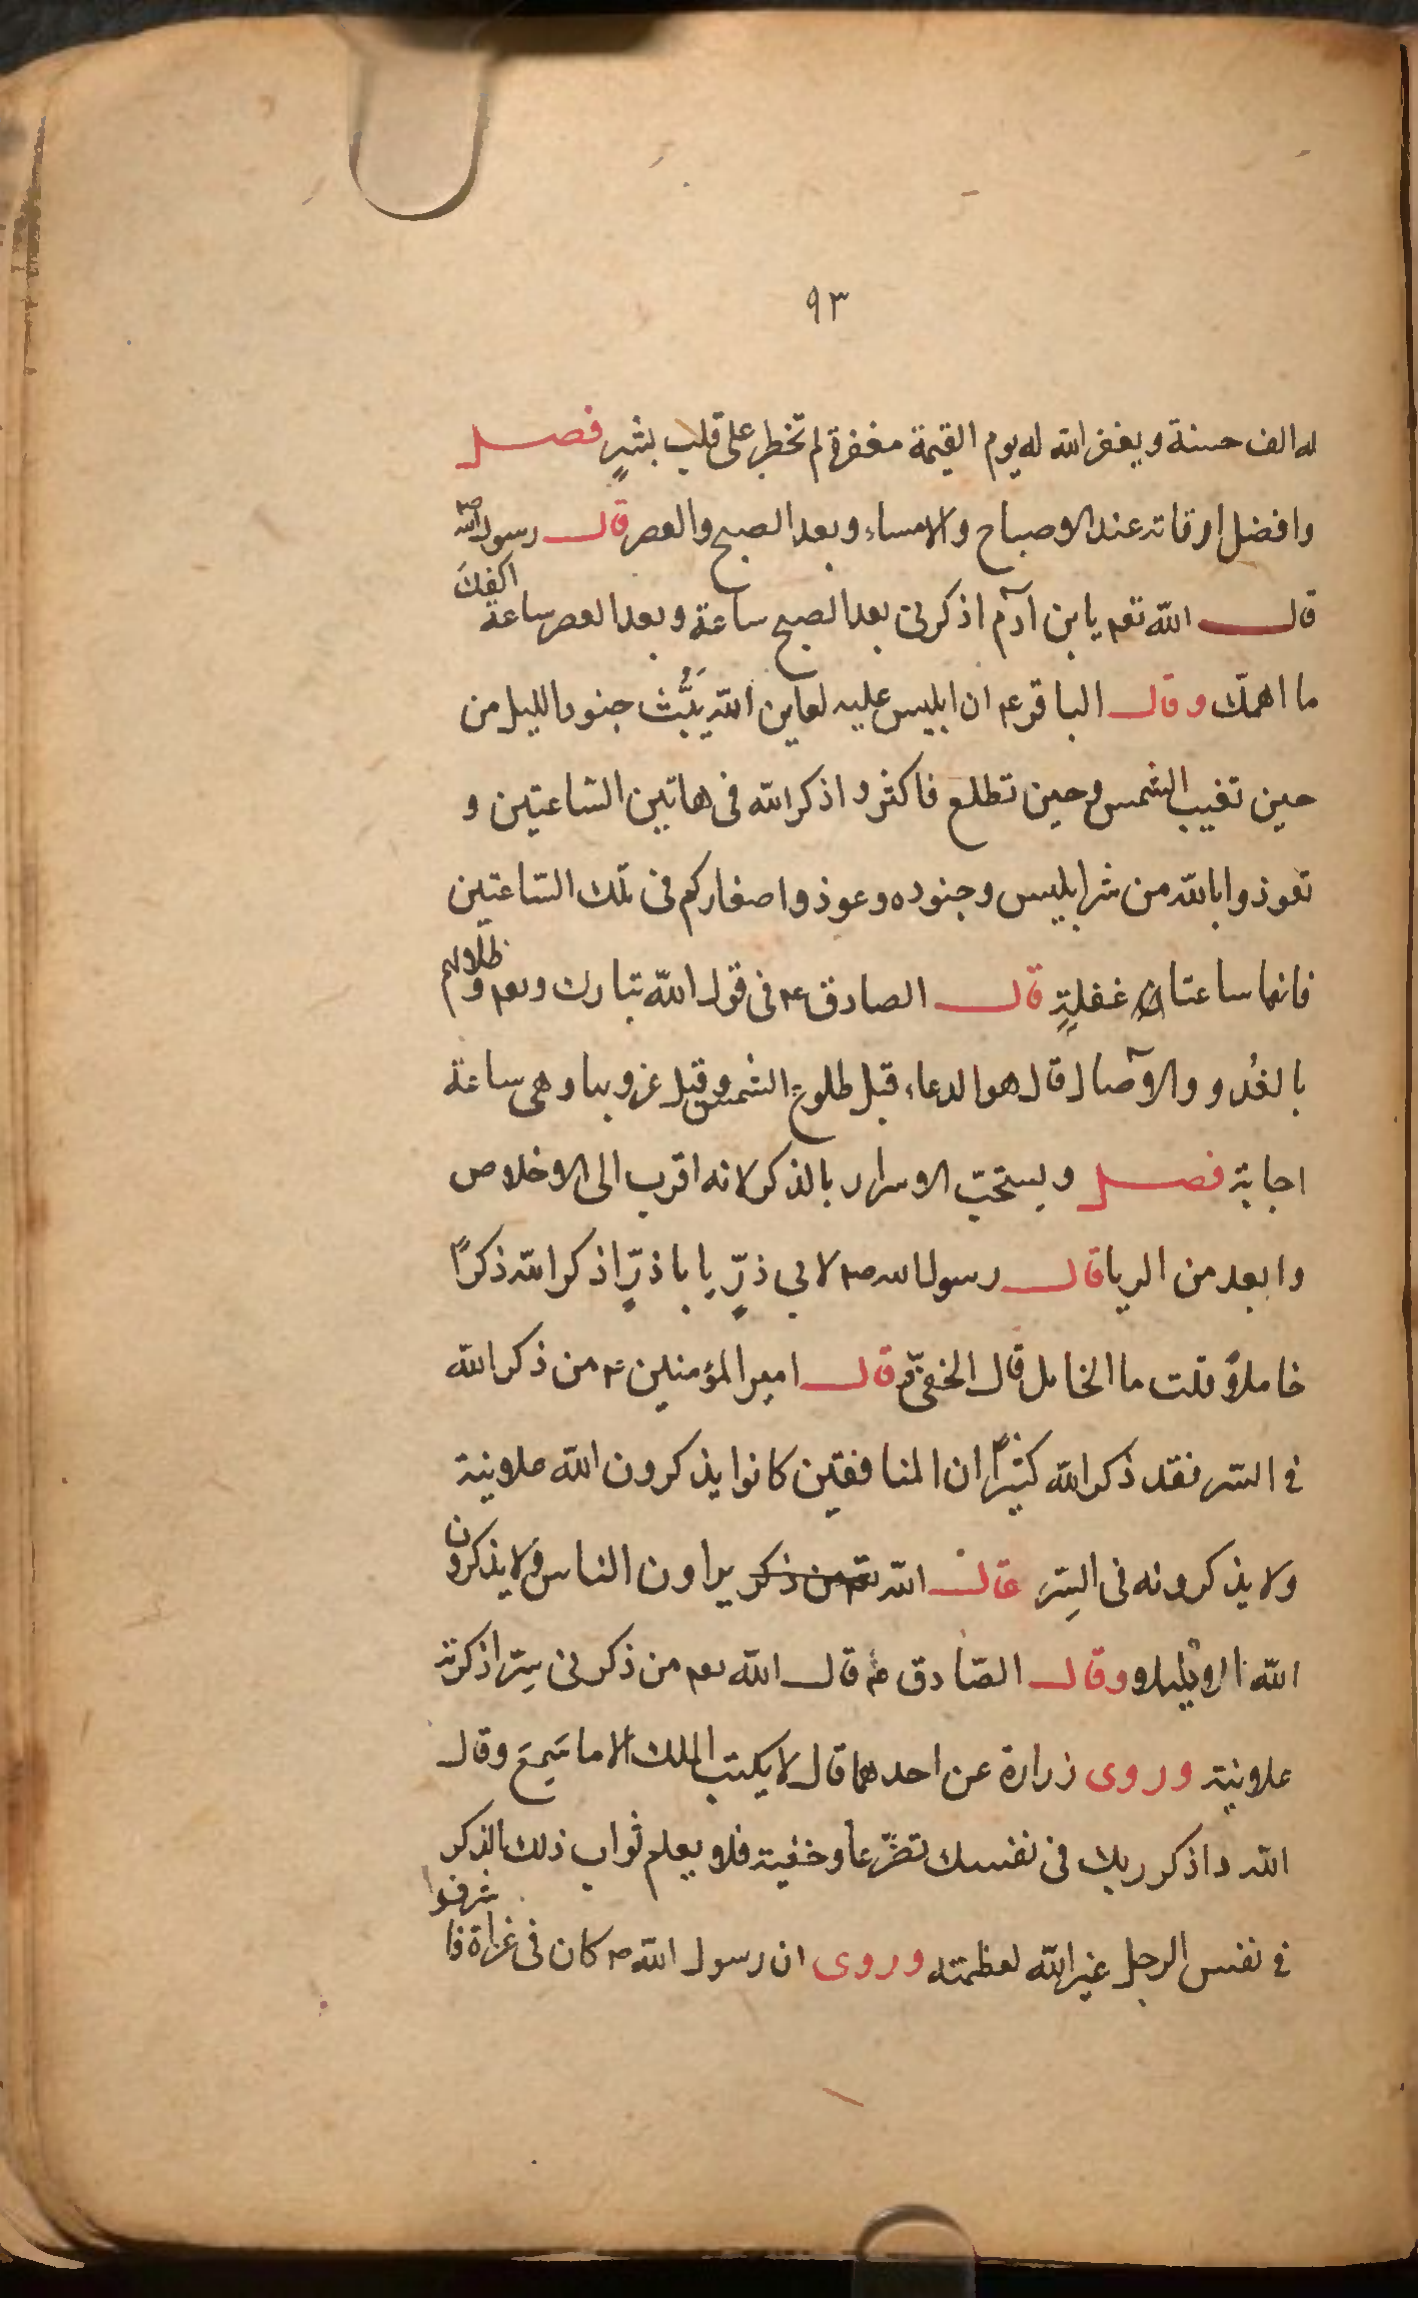 ٩٣
له الف حسنة ويغفر الله له يوم القيمة مغفرة لم تخطر على قلب بشرٍ فصل
وافضل اوقاته عند الاصباح والامساء وبعد الصبح والعصر قال رسول الله ص
قال الله تعم يا بن آدم اذكرنى بعد الصبح ساعة وبعد العصر ساعة اكفك
ما اهمّك وقال الباقر ع ان ابليس عليه لعاين الله يَبُثّ جنود الليل من
حين تغيب الشمس وحين تطلع فاكثروا ذكر الله فى هاتين السّاعتين و
تعوذوا بالله من شر ابليس وجنوده وعوذوا صغاركم فى تلك السّاعتين
فانهما ساعتان غفلةٍ قال الصادق ع فى قول الله تبارك وتعم وظلالهم
بالغُدو والآصال قال هو الدعاء قبل طلوع الشمس وقبل غروبها وهى ساعة
اجابة فصل ويستحبّ الاسرار بالذكر لانه اقرب الى الاخلاص
وابعد من الريا قال رسول الله ص لابي ذرٍّ يا باذرٍّ اذكر الله ذكراً
خاملاً قلت ما الخامل قال الخفىّ قال امير المؤمنين ع من ذكر الله
في السّر فقد ذكر الله كثيراً ان المنافقين كانوا يذكرون الله علانية
ولا يذكرونه فى السِرّ فقال الله تعم من ذكر يراون الناس ولا يذكرون
الله الا قليلا وقال الصّادق ع قال الله تعم من ذكرنى سِرّا ذكرته
علانية وروى زرارة عن احدهما قال لا يكتب الملك الا ما سَمِعَ وقال
الله واذكر ربك فى نفسك تضرّعا وخفية فلا يعلم ثواب ذلك الذكر
في نفس الرجل غير الله لعظمته وروى ان رسول الله ص كان فى غزاة فاشرفوا